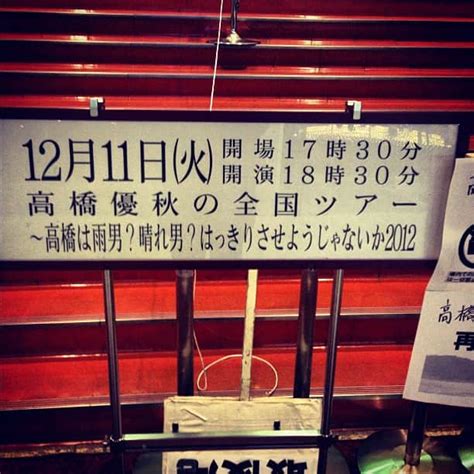 12月11日(火) 開場17時30分
開演18時30分
高橋優秋の全国ツアー
～高橋は雨男？晴れ男？はっきりさせようじゃないか2012
高橋
再
最後尾